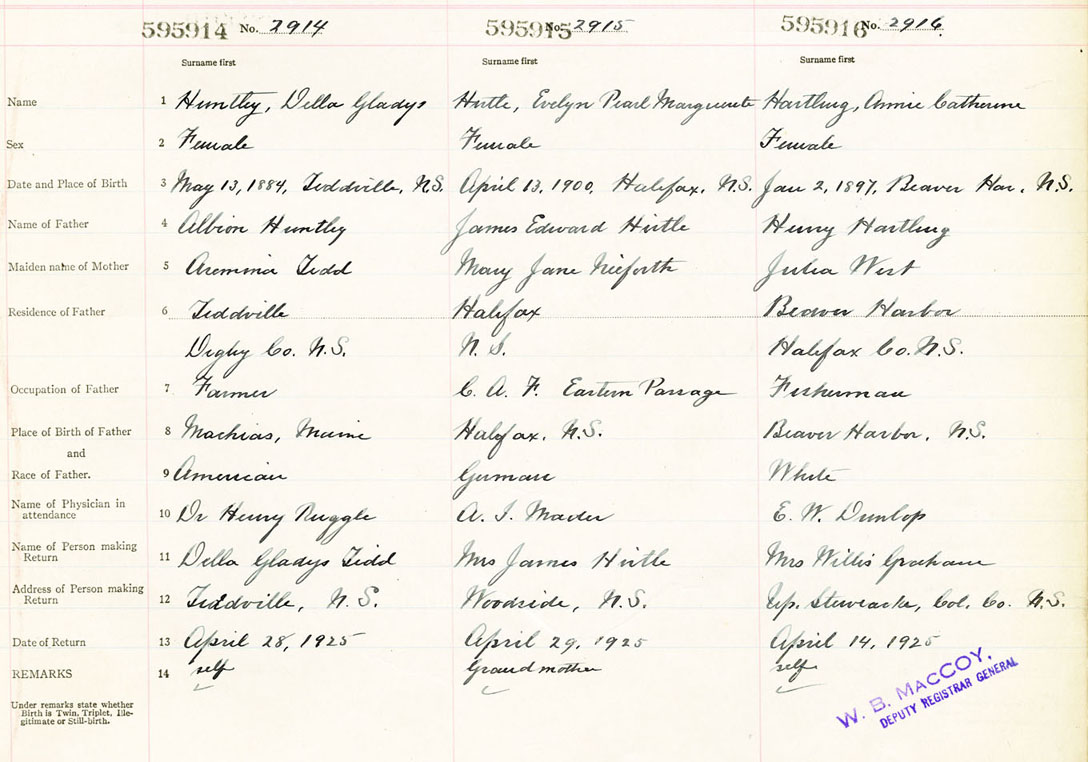 595914 No. 2914 595915 No. 2915 595916 No. 2916
Surname first Surname first Surname first
Name 1 Huntley, Della Gladys Hirtle, Evelyn Pearl Marguerite Hartling, Annie Catherine
Sex 2 Female Female Female
Date and Place of Birth 3 May 13, 1884, Tiddville, N.S. April 13, 1900, Halifax, N.S. Jan 2, 1897, Beaver Har, N.S.
Name of Father 4 Albion Huntley James Edward Hirtle Henry Hartling
Maiden name of Mother 5 Aremina Tidd Mary Jane Nieforth Julia West
Residence of Father 6 Tiddville Halifax Beaver Harbor
Digby Co. N.S. N.S. Halifax Co. N.S.
Occupation of Father 7 Farmer C. A. F. Eastern Passage Fisherman
Place of Birth of Father 8 Machias, Maine Halifax, N.S. Beaver Harbor, N.S.
and
Race of Father. 9 American German White
Name of Physician in
attendance 10 Dr Henry Ruggle A. I. Mader E. W. Dunlop
Name of Person making
Return 11 Della Gladys Tidd Mrs James Hirtle Mrs Willis Graham
Address of Person making
Return 12 Tiddville, N.S. Woodside, N.S. Up. Stewiacke, Col. Co. N.S.
Date of Return 13 April 28, 1925 April 29, 1925 April 14, 1925
REMARKS 14 self Grand mother self
Under remarks state whether
Birth is Twin, Triplet, Ille-
gitimate or Still-birth.
W. B. MacCOY,
DEPUTY REGISTRAR GENERAL